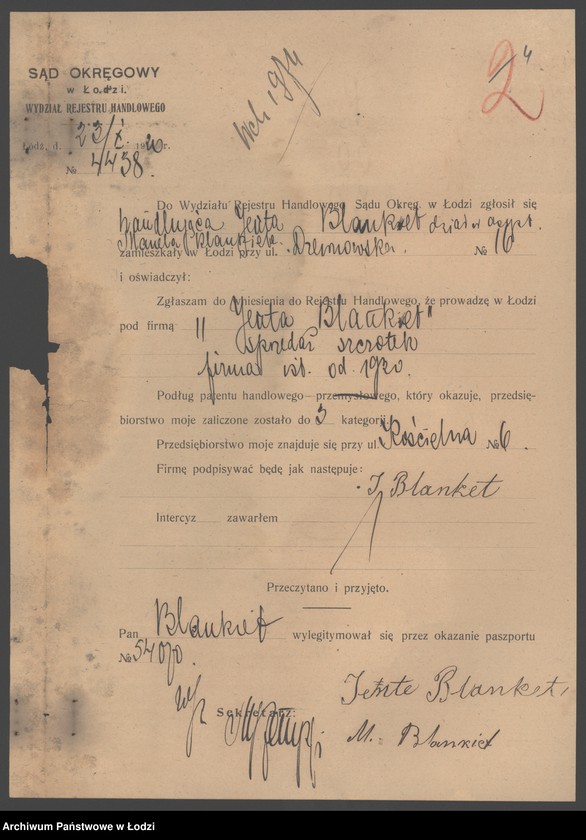 4
2
Wch 1974
SĄD OKRĘGOWY
w Łodzi.
WYDZIAŁ REJESTRU HANDLOWEGO
Łódź, d. 23/X 1920 r.
№ 4458.
Do Wydziału Rejestru Handlowego Sądu Okręg. w Łodzi zgłosił się
handlująca Jenta Blankiet dział w asyst.
Manela Blankieta
zamieszkały w Łodzi przy ul. Drewnowska. № 16
i oświadczył:
Zgłaszam do wniesienia do Rejestru Handlowego, że prowadzę w Łodzi
pod firmą "Jenta Blankiet"
sprzedaż szczotek
firma ist. od 1920.
Podług patentu handlowego-przemysłowego, który okazuje, przedsię-
biorstwo moje zaliczone zostało do 3 kategorji.
Przedsiębiorstwo moje znajduje się przy ul. Kościelna № 6.
Firmę podpisywać będę jak następuje:
J Blanket
Intercyz zawarłem
Przeczytano i przyjęto.
Pan Blankiet wylegitymował się przez okazanie paszportu
№ 54070.
Sekretarz:
Jente Blanket
M. Blankiet
Archiwum Państwowe w Łodzi